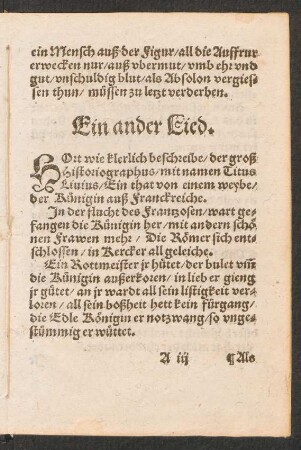 ein Mensch auß der Figur/all die Auffrur
erwecken nur/auß vbermut/vmb ehr vnd
gut/vnschuldig blut/als Absolon vergies-
sen thun/müssen zu letzt verderben.
Ein ander Lied.
HOrt wie klerlich beschreibe/der groß
Historiographus/mit namen Titus
Liuius/Ein that von einem weybe/
der Künigin auß Franckreiche.
In der flucht des Frantzosen/wart gef-
fangen die Künigin her/mit andern schö-
nen Frawen mehr/Die Römer sich ent-
schlossen/in Kercker all geleiche.
Ein Rottmeister jr hütet/der bulet vm̄
die Künigin außerkoren/in lieb er gieng
jr gütet/an jr wardt all sein listigkeit ver-
loren/all sein boßheit hett kein fürgang/
die Edle Künigin er notzwang/so vnge-
stümmig er wüttet.
A iij ¶ Als